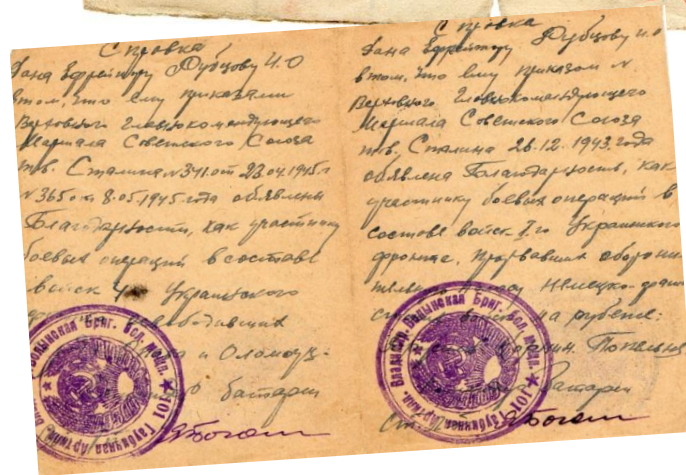 Справка
Дана Ефрейтору Рубцову И.О
в том, что ему приказами
Верховного Главнокомандующего
Маршала Советского Союза
тов. Сталина №341 от 23.04.1945г
№365 от 8.05.1945 года объявлены
Благодарности, как участнику
боевых операций в составе
войск 4го Украинского
освободивших
и Оломоуц.
батареи
Справка
Дана Ефрейтору Рубцову И.О
в том, что ему приказом №
Верховного Главнокомандующего
Маршала Советского Союза
тов. Сталина 26.12.1943 года
объявлена Благодарность, как
участнику боевых операций в
составе войск 1го Украинского
фронта, прорвавших оборони-
тельную полосу Немецко-
на рубеже:
батареи
101 Гаубичная Артил. Бриг. Бол. мощн.
101 Гаубичная Артил. Бриг. Бол. мощн.